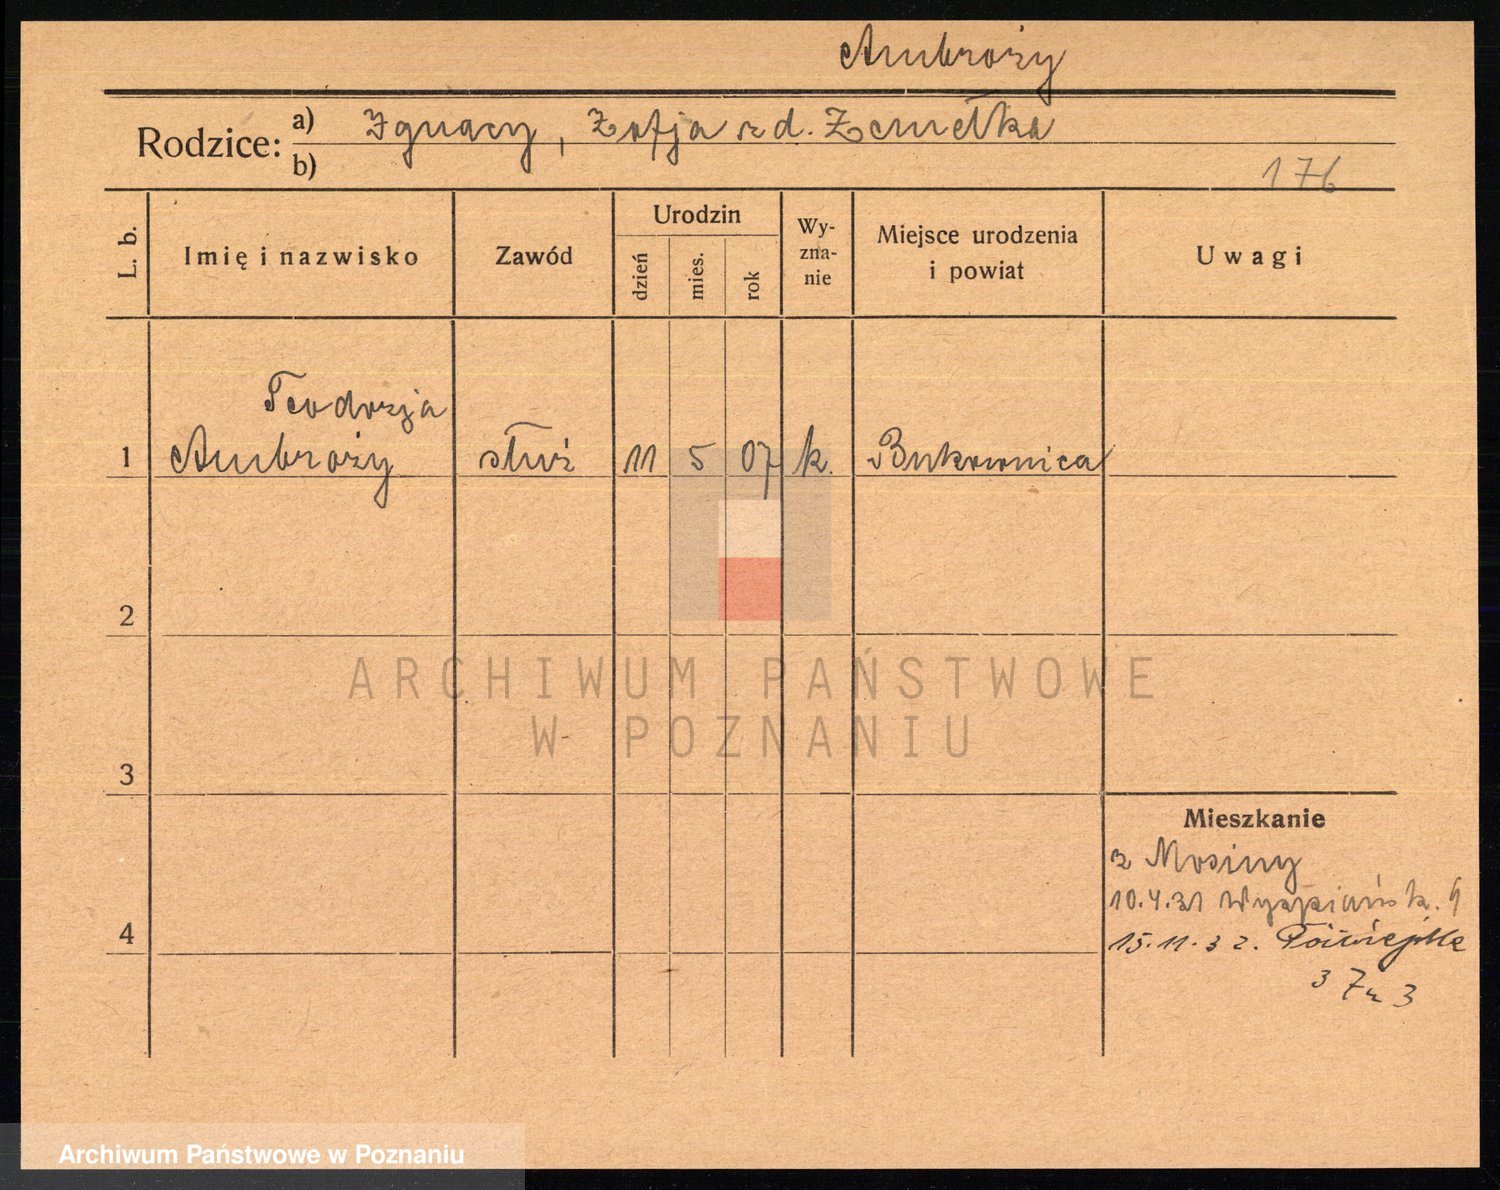 Ambroży
Rodzice: a) Ignacy, Zofja z d. Zemełka
b)
176
L. b. Imię i nazwisko Zawód Urodzin dzień mies. rok Wy-zna-nie Miejsce urodzenia i powiat Uwagi
Teodozja
1 Ambroży służ 11 5 07 k. Bukownica
2
3
Mieszkanie
z Mosiny
10.4.31 Wyspiańsk. 9
4
15.11.32.
ARCHIWUM PAŃSTWOWE
W POZNANIU
Archiwum Państwowe w Poznaniu